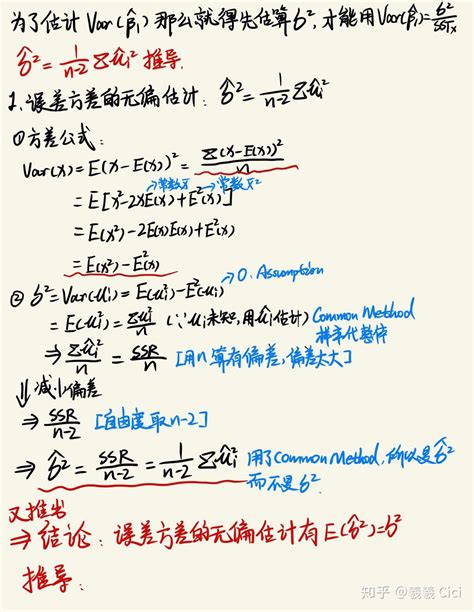 为了估计 Var(β̂₁) 那么就得先估算 σ², 才能用 Var(β̂₁)=σ²/SSTx
σ̂²=1/(n-2) Σûi² 推导.
1.误差方差的无偏估计: σ̂²=1/(n-2) Σûi²
①方差公式:
Var(x)=E(x-E(x))²=Σ(x-E(x))²/n
→常数x̄ →常数x̄²
=E[x²-2xE(x)+E²(x)]
=E(x²)-2E(x)E(x)+E²(x)
=E(x²)-E²(x)
→0. Assumption
② σ²=Var(ui)=E(ui²)-E²(ui)
=E(ui²)=Σui²/n (∵ui未知,用ûi估计) Common Method
样本代替总体
⇒ Σûi²/n = SSR/n [用n算有偏差,偏差太大]
⇓减小偏差
⇒ SSR/(n-2) [自由度取n-2]
⇒ σ̂²=SSR/(n-2)=1/(n-2) Σûi² 用了Common Method,所以是σ̂²
而不是σ².
又推出
⇒结论: 误差方差的无偏估计有E(σ̂²)=σ²
推导:
知乎 @羲羲 Cici